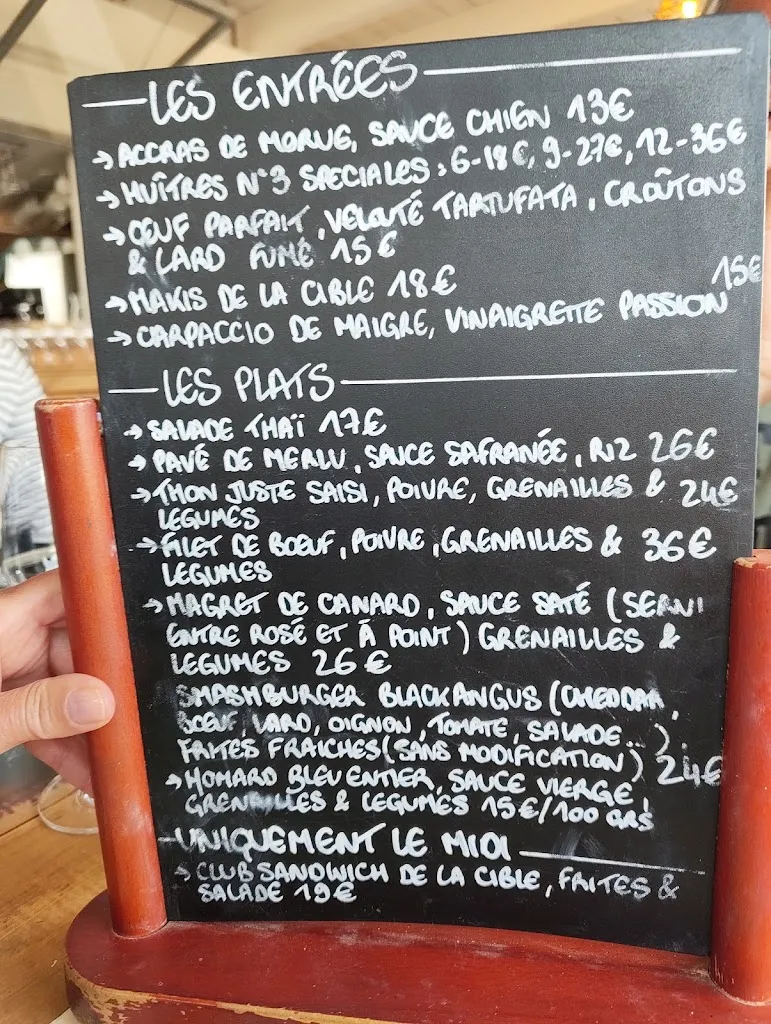 LES ENTRÉES
→ ACCRAS DE MORUE, SAUCE CHIEN 13€
→ HUÎTRES N°3 SPECIALES : 6-18€, 9-27€, 12-36€
→ ŒUF PARFAIT, VELOUTÉ TARTUFATA, CROÛTONS
& LARD FUMÉ 15€
→ MAKIS DE LA CIBLE 18€
15€
→ CARPACCIO DE MAIGRE, VINAIGRETTE PASSION
LES PLATS
→ SALADE THAÏ 17€
→ PAVÉ DE MERLU, SAUCE SAFRANÉE, RIZ 26€
→ THON JUSTE SAISI, POIVRE, GRENAILLES & 24€
LEGUMES
→ FILET DE BŒUF, POIVRE, GRENAILLES & 36€
LEGUMES
→ MAGRET DE CANARD, SAUCE SATÉ (SERVI
ENTRE ROSÉ ET À POINT) GRENAILLES &
LEGUMES 26€
SMASHBURGER BLACK ANGUS (CHEDDAR,
BŒUF, LARD, OIGNON, TOMATE, SALADE...),
FRITES FRAICHES (SANS MODIFICATION) 24€
→ HOMARD BLEU ENTIER, SAUCE VIERGE,
GRENAILLES & LEGUMES 15€/100 GRS
UNIQUEMENT LE MIDI
→ CLUB SANDWICH DE LA CIBLE, FRITES &
SALADE 19€